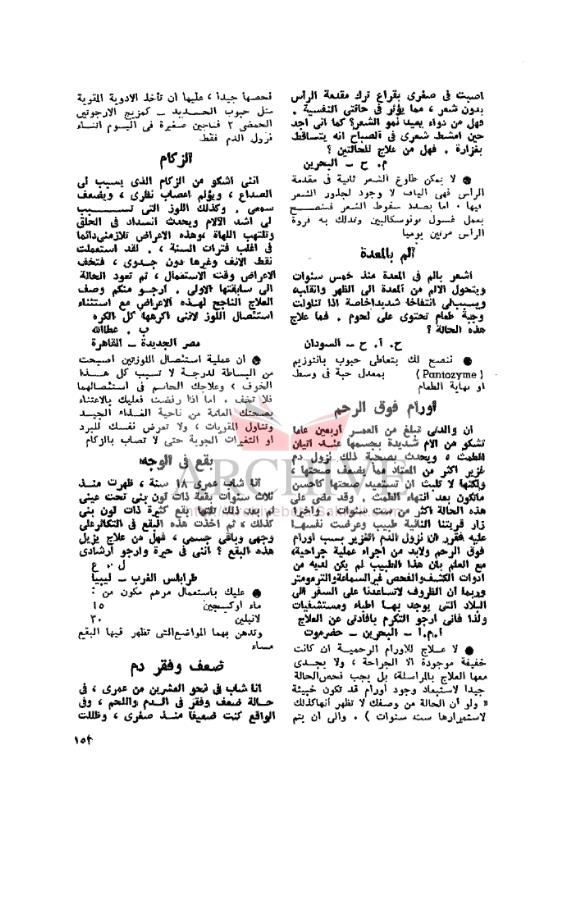 اصبت فى صغرى بقراع ترك مقدمة الراس
بدون شعر ، مما يؤثر فى حالتى النفسية .
فهل من دواء يعيد نمو الشعر؟ كما انى اجد
حين امشط شعرى فى الصباح انه يتساقط
بغزارة . فهل من علاج للحالتين ؟
م. ح – البحرين
● لا يمكن طلوع الشعر ثانية فى مقدمة
الراس فهى الياف لا وجود لجذور الشعر
فيها . اما بصدد سقوط الشعر فننصح
بعمل غسول بونوسكالبين وتدلك به فروة
الراس مرتين يوميا
الم بالمعدة
اشعر بالم فى المعدة منذ خمس سنوات
ويتحول الالم من المعدة الى الظهر وانقلبه
ويسبب لى انتفاخا شديدا خاصة اذا تناولت
وجبة طعام تحتوى على لحوم . فما علاج
هذه الحالة ؟
ح. أ. ح – السودان
● ننصح لك بتعاطى حبوب بانتوزيم
( Pantozyme ) بمعدل حبة فى وسط
او نهاية الطعام
أورام فوق الرحم
ان والدتى تبلغ من العمر اربعين عاما
تشكو من الام شديدة بجسمها عند اتيان
الطمث ، ويحدث بصحبة ذلك نزول دم
غزير اكثر من المعتاد . قد يضعف صحتها ،
ولكنها لا تلبث ان تستعيد صحتها كاحسن
ماتكون بعد انتهاء الطمث . وقد مضى على
هذه الحالة اكثر من ست سنوات . واخيرا
زار قريتنا النائية طبيب وعرضت نفسها
عليه فقرر ان نزول الدم الغزير بسبب اورام
فوق الرحم ولابد من اجراء عملية جراحية،
مع العلم بان هذا الطبيب لم يكن لديه من
ادوات الكشف والفحص غير السماعة والترمومتر
وربما ان الظروف لاتساعدنا على السفر الى
البلاد التى يوجد بها اطباء ومستشفيات
ولذا فانى ارجو التكرم بافادتى عن العلاج
أ.م.أ – البحرين – حضرموت
● لا علاج للأورام الرحمية ان كانت
خفيفة موجودة الا الجراحة ، ولا يجدى
معها العلاج بالمراسلة، بل يجب فحص الحالة
جيدا لاستبعاد وجود أورام قد تكون خبيثة
« ولو أن الحالة من وصفك لا تظهر أنها كذلك
لاستمرارها ست سنوات ) . والى ان يتم
فحصها جيدا ، عليها أن تأخذ الادوية المقوية
مثل حبوب الحديد – كمزيج الارجوتين
الحمضى ٢ فناجين صغيرة فى اليوم اثناء
نزول الدم فقط
الزكام
اننى اشكو من الزكام الذى يسبب لى
الصداع ، ويؤلم اعصاب نظرى ، ويضعف
سمعى . وكذلك اللوز التى تسبب
لى اشد الآلام ويحدث انسداد فى الحلق
وتلتهب اللهاة ،وهذه الاعراض تلازمنى دائما
فى اغلب فترات السنة ، لقد استعملت
نقط الانف وغيرها دون جدوى ، فتخف
الاعراض وقت الاستعمال ، ثم تعود الحالة
الى سابقتها الاولى . ارجو منكم وصف
العلاج الناجح لهذه الاعراض مع استثناء
استئصال اللوز لاننى اكرهها كل الكره
ب . عطاالله
مصر الجديدة – القاهرة
● ان عملية استئصال اللوزتين اصبحت
من البساطة لدرجة لا تسبب كل هذا
الخوف ، وعلاجك الحاسم فى استئصالهما
فلا تخف . اما اذا رفضت فعليك بالاعتناء
بصحتك العامة من ناحية الغذاء الجيد
وتناول المقويات ، ولا تعرض نفسك للبرد
او التغيرات الجوية حتى لا تصاب بالزكام
بقع فى الوجه
انا شاب عمرى ١٨ سنة ، ظهرت منذ
ثلاث سنوات بقعة ذات لون بنى تحت عينى
ثم بعد ذلك تلتها بقع كثيرة ذات لون بنى
كذلك ، ثم اخذت هذه البقع فى التكاثر على
وجهى وباقى جسمى ، فهل من علاج يزيل
هذه البقع ؟ اننى فى حيرة وارجو ارشادى
ل . ع
طرابلس الغرب – ليبيا
● عليك باستعمال مرهم مكون من :
ماء اوكسجين ١٥
لانلين ٣٠
وتدهن بهما المواضع التى تظهر فيها البقع
مساء
ضعف وفقر دم
انا شاب فى نحو العشرين من عمرى ، فى
حالة ضعف وفقر فى الدم واللحم ، وفى
الواقع كنت ضعيفا منذ صغرى ، وظللت
١٥٣
ARCHIVE